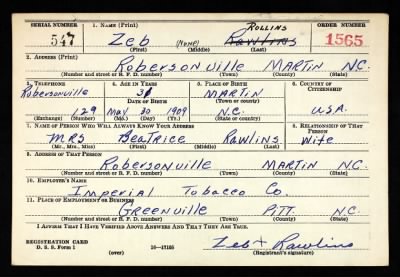 SERIAL NUMBER 1. NAME (Print) ROLLINS ORDER NUMBER
547 Zeb (NONE) Rawlins 1565
(First) (Middle) (Last)
2. ADDRESS (Print)
Robersonville MARTIN N.C.
(Number and street or R. F. D. number) (Town) (County) (State)
3. TELEPHONE 4. AGE IN YEARS 5. PLACE OF BIRTH 6. COUNTRY OF CITIZENSHIP
Robersonville 31 MARTIN
DATE OF BIRTH (Town or county)
129 May 20 1909 N.C. U.S.A.
(Exchange) (Number) (Mo.) (Day) (Yr.) (State or country)
7. NAME OF PERSON WHO WILL ALWAYS KNOW YOUR ADDRESS 8. RELATIONSHIP OF THAT PERSON
MRS BeATRICE Rawlins Wife
(Mr., Mrs., Miss) (First) (Middle) (Last)
9. ADDRESS OF THAT PERSON
Robersonville MARTIN N.C.
(Number and street or R. F. D. number) (Town) (County) (State)
10. EMPLOYER'S NAME
Imperial Tobacco Co.
11. PLACE OF EMPLOYMENT OR BUSINESS
Greenville PITT. N.C.
(Number and street or R. F. D. number) (Town) (County) (State)
I AFFIRM THAT I HAVE VERIFIED ABOVE ANSWERS AND THAT THEY ARE TRUE.
REGISTRATION CARD
D. S. S. Form 1 16—17105 Zeb x Rawlins
(over) (Registrant's signature)